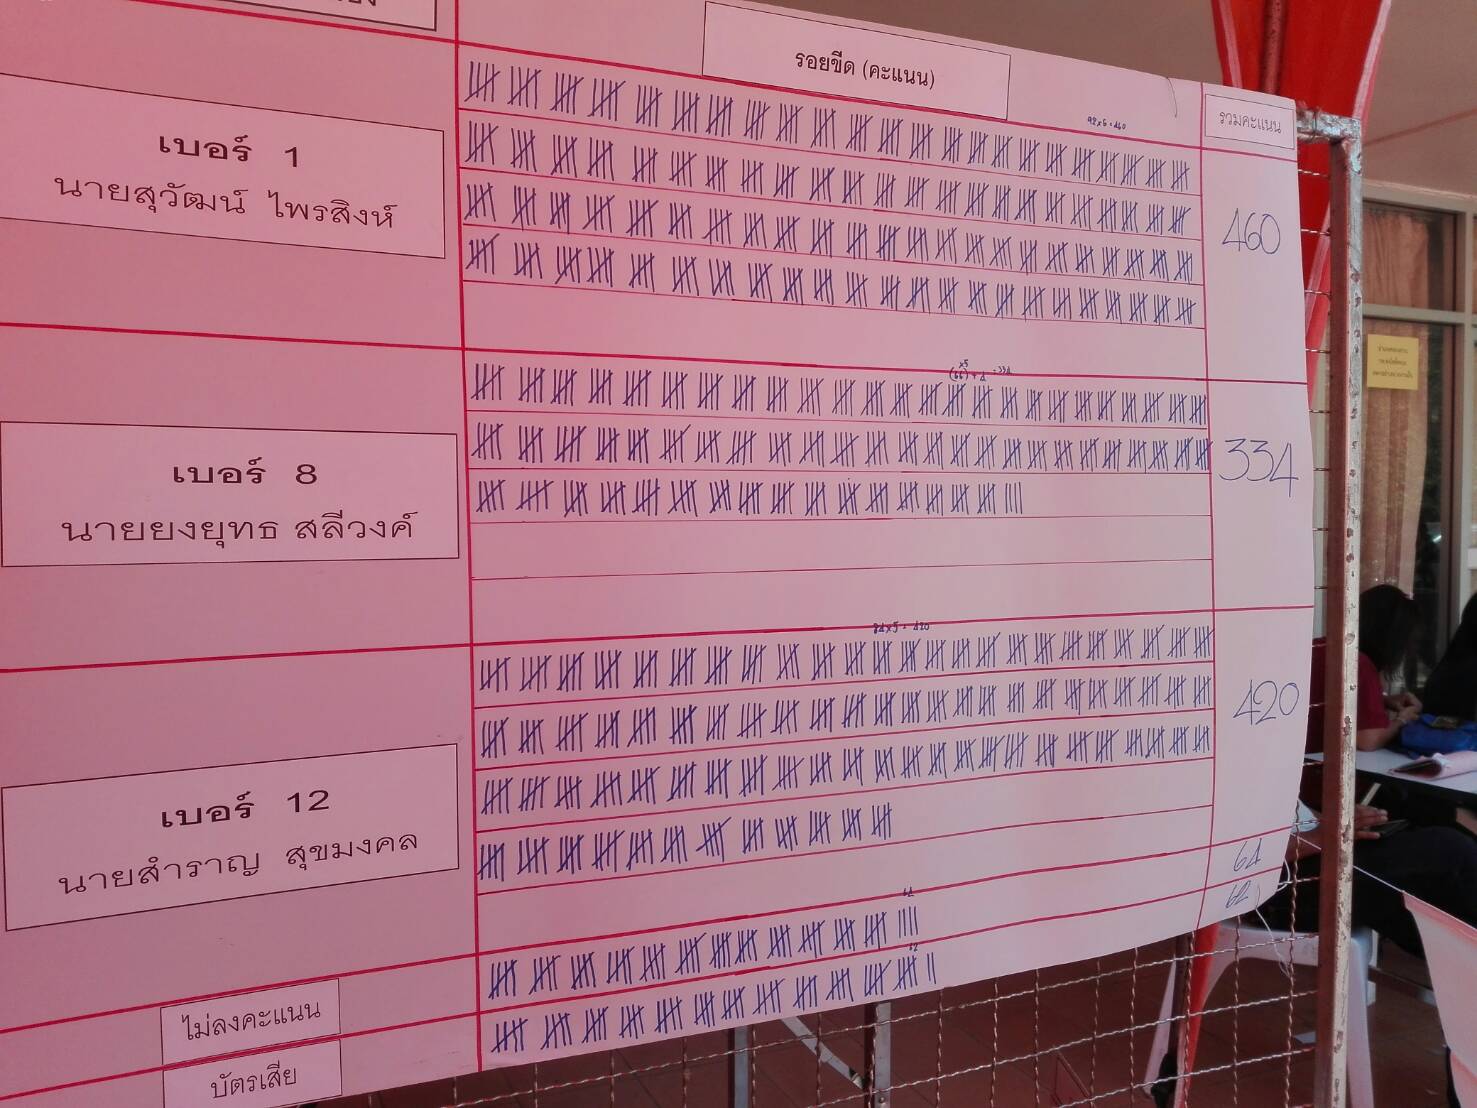 รอยขีด (คะแนน)
รวมคะแนน
92x5 = 460
เบอร์ 1
นายสุวัฒน์ ไพรสิงห์
460
x5
(66) + 4 = 334
เบอร์ 8
นายยงยุทธ สลีวงค์
334
84x5 = 420
เบอร์ 12
นายสำราญ สุขมงคล
420
64
64
ไม่ลงคะแนน
62
62
บัตรเสีย